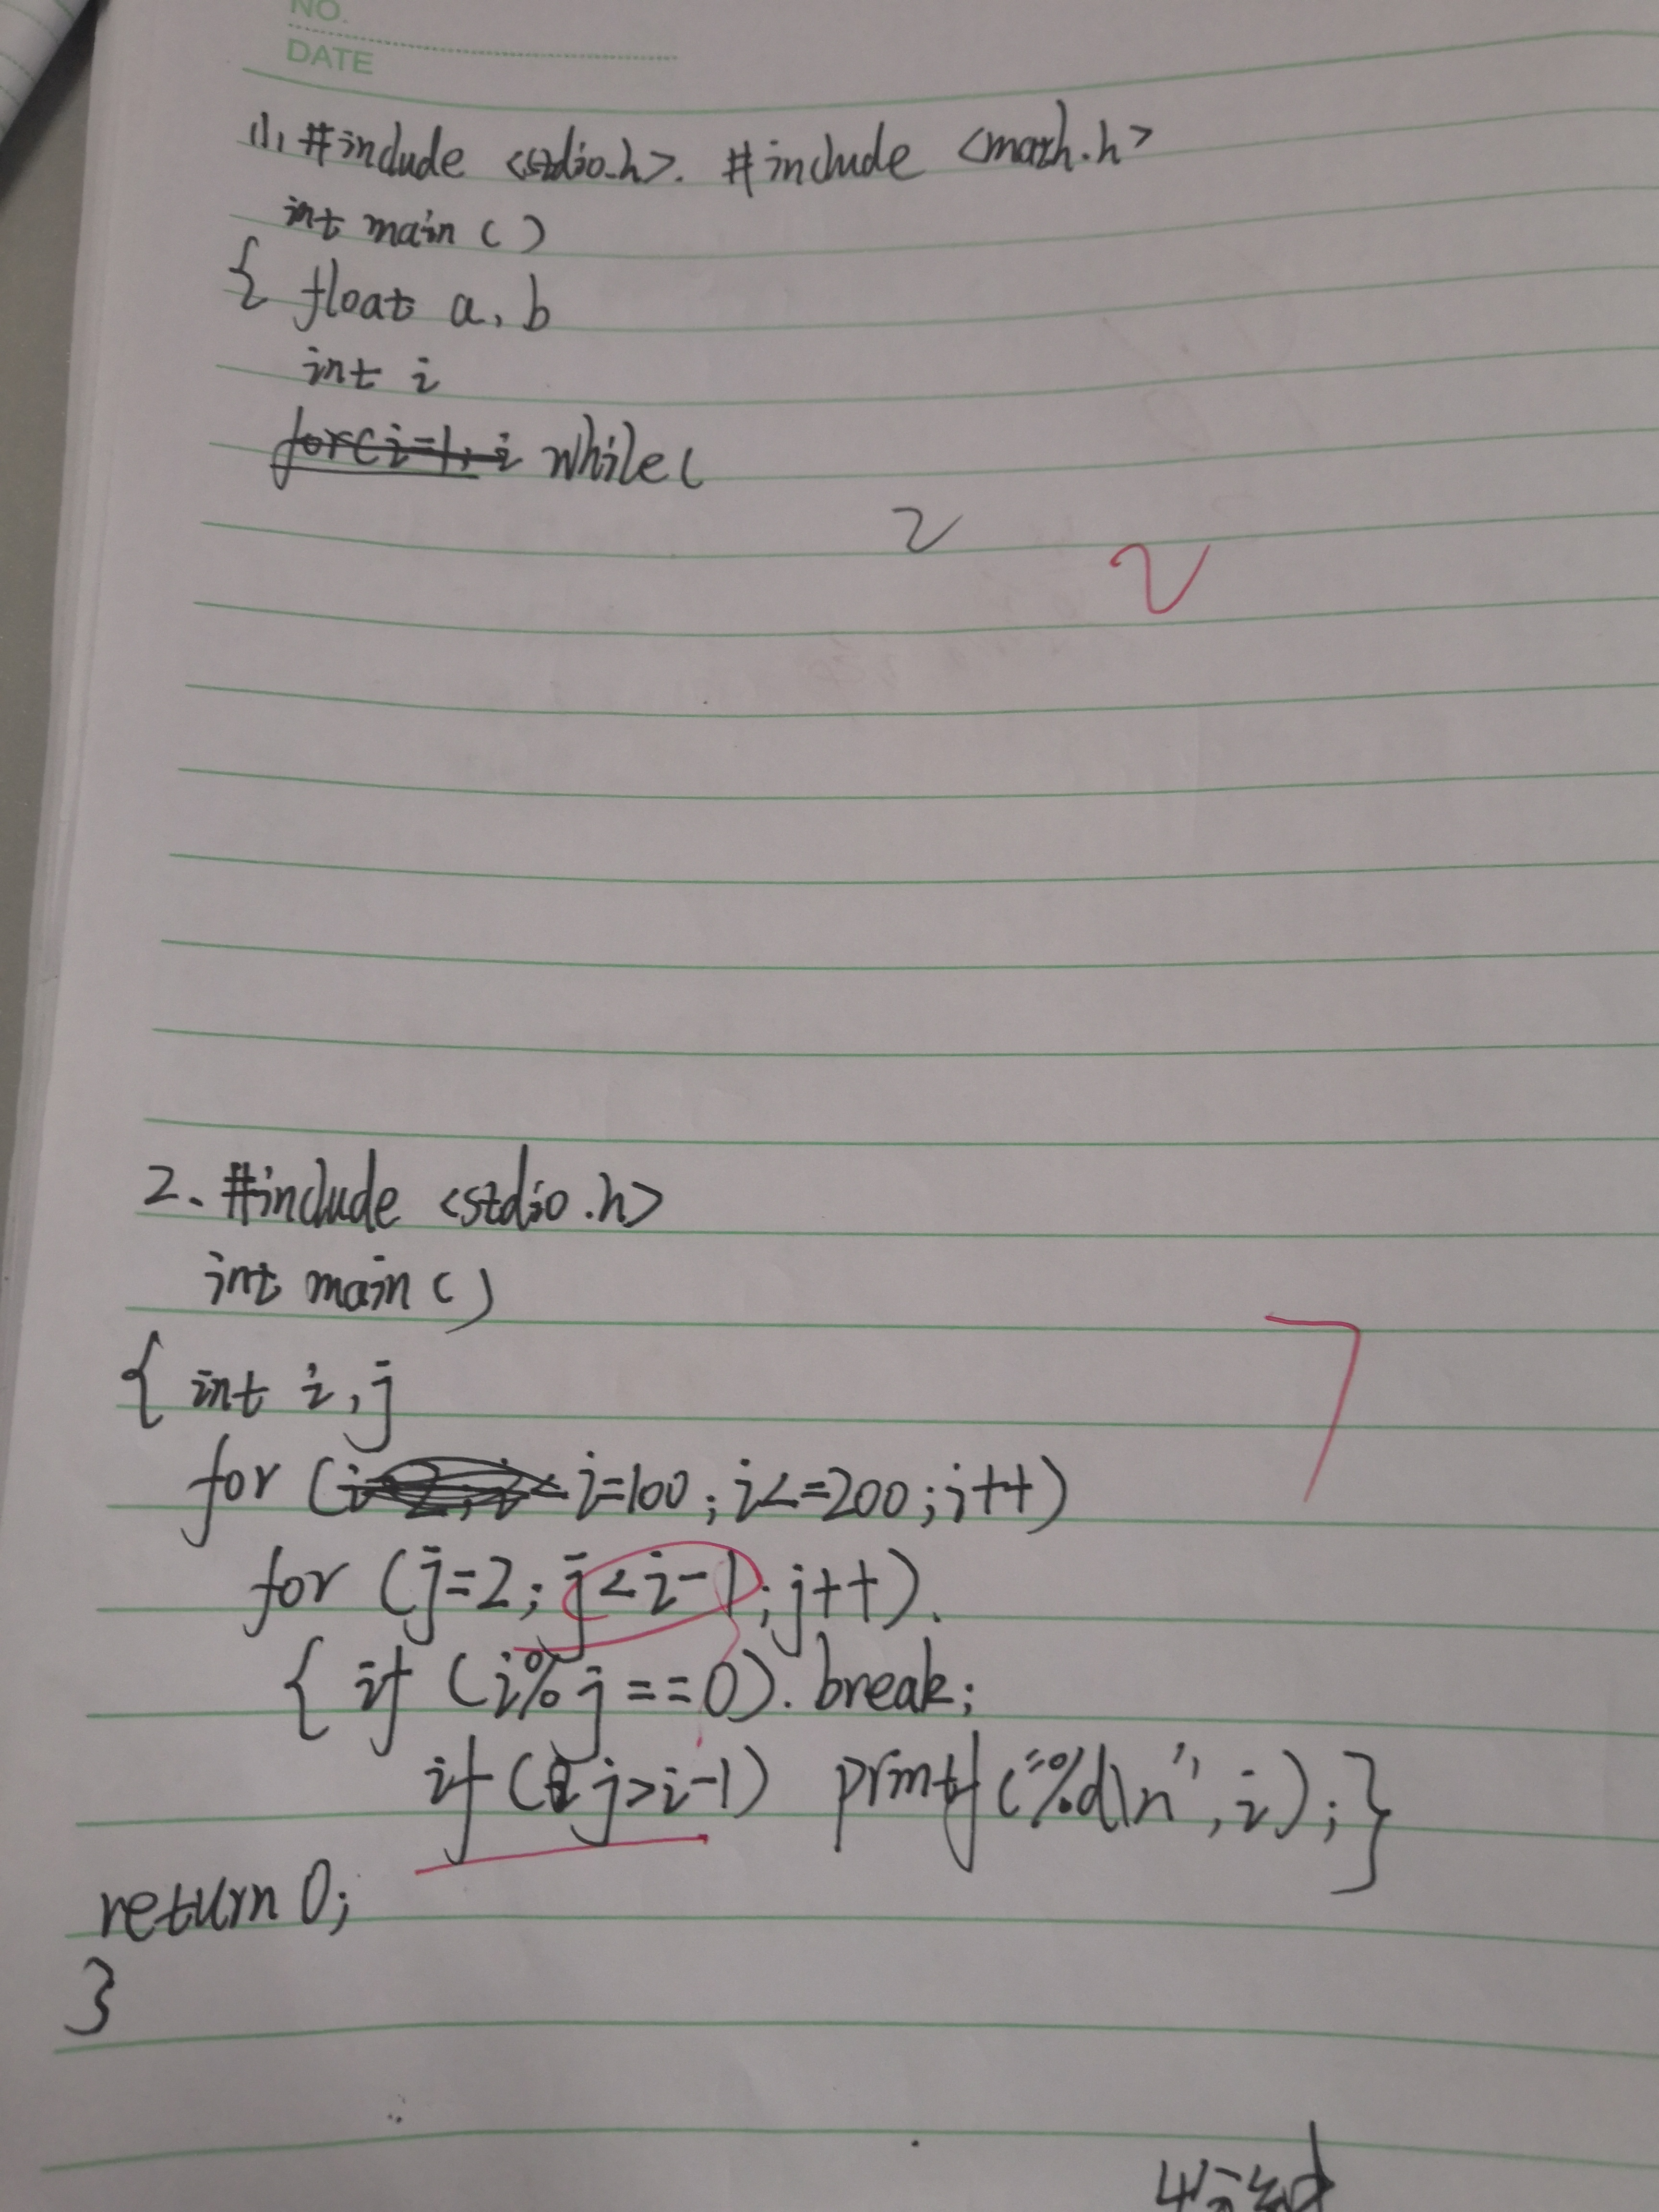 NO.
DATE
(1), #include <stdio.h>. #include <math.h>
int main ( )
{ float a, b
int i
for(i=1, i while(
2
2
2、#include <stdio.h>
int main ( )
{ int i, j
for ( i=100; i<=200; i++)
7
for (j=2; j<i-1; j++).
{ if (i%j==0). break;
if ( j>i-1) printf("%d\n", i);}
return 0;
}